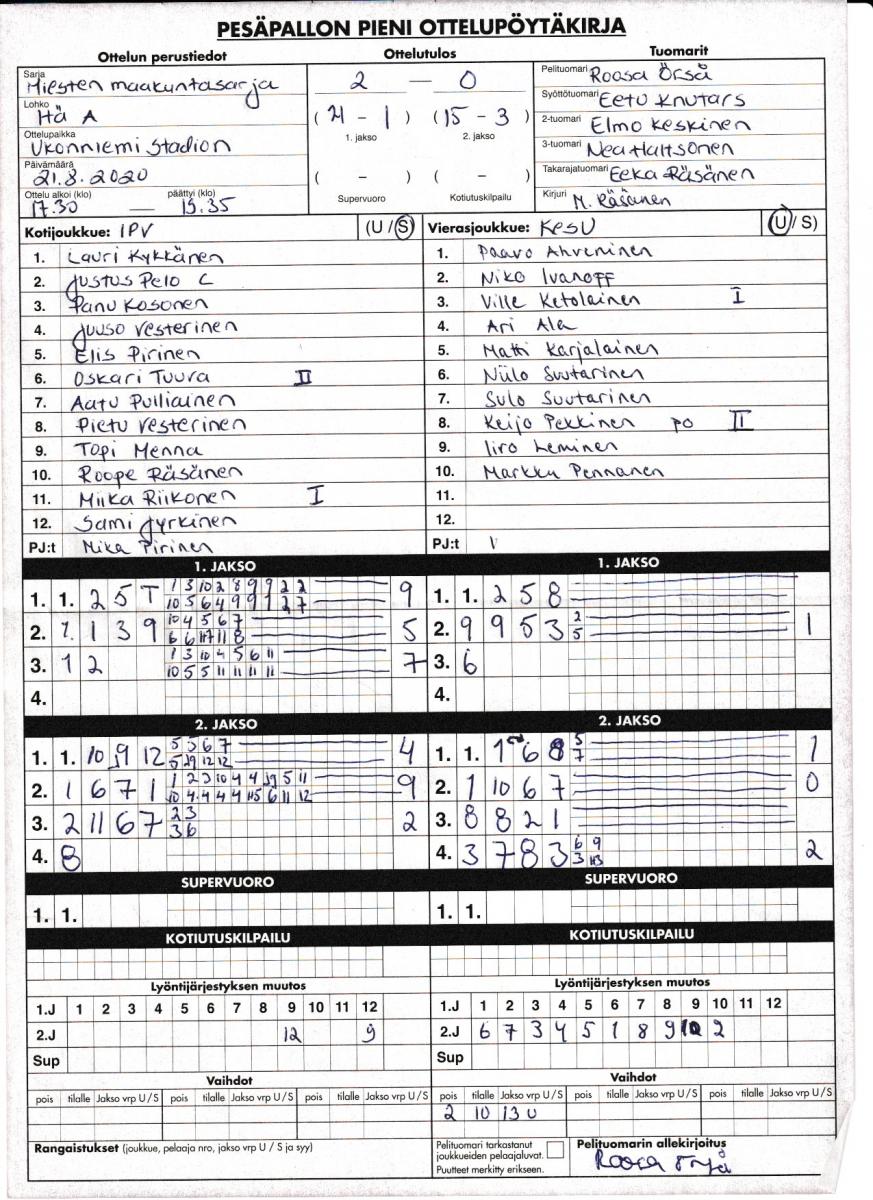 PESÄPALLON PIENI OTTELUPÖYTÄKIRJA
Ottelun perustiedot
Sarja Miesten maakuntasarja
Lohko Hä A
Ottelupaikka Ukonniemi Stadion
Päivämäärä 21.8.2020
Ottelu alkoi (klo) päättyi (klo)
17.30 — 19.35
Ottelutulos
2 — 0
(21 - 1) (15 - 3)
1. jakso 2. jakso
( - ) ( - )
Supervuoro Kotiutuskilpailu
Tuomarit
Pelituomari Roosa Örså
Syöttötuomari Eetu Knutars
2-tuomari Elmo Keskinen
3-tuomari Nea Haltsonen
Takarajatuomari Eeka Räsänen
Kirjuri M. Räsänen
Kotijoukkue: IPV (U / S)
1. Lauri Kykkänen
2. Justus Pelo C
3. Panu Kosonen
4. Juuso Vesterinen
5. Elis Pirinen
6. Oskari Tuura II
7. Aatu Pulliainen
8. Pietu Vesterinen
9. Topi Menna
10. Roope Räsänen
11. Miika Riikonen I
12. Sami Jyrkinen
PJ:t Mika Pirinen
Vierasjoukkue: KeSu (U / S)
1. Paavo Ahveninen
2. Niko Ivanoff
3. Ville Ketolainen I
4. Ari Ala
5. Matti Karjalainen
6. Niilo Suutarinen
7. Sulo Suutarinen
8. Keijo Pekkinen po II
9. Iiro Leminen
10. Markku Pennanen
11.
12.
PJ:t
1. JAKSO
1. 1. 2 5 T 1 3 10 2 8 9 9 2 2 9
10 5 6 4 9 9 1 2 7
2. 1 3 9 10 4 5 6 7 5
6 6 11 8
3. 1 2 1 3 10 4 5 6 11 7
10 5 5 11 11 11 11
4.
1. JAKSO
1. 1. 2 5 8
2. 9 9 5 3 2 1
5
3. 6
4.
2. JAKSO
1. 1. 10 9 12 5 5 6 7 4
12 12
2. 1 6 7 1 1 2 3 10 4 4 5 11 9
10 4 4 4 4 6 11 12
3. 2 11 6 7 2 3 2
3 6
4. 8
2. JAKSO
1. 1. 1 6 8 5 1
7
2. 1 10 6 7 0
3. 8 8 2 1
4. 3 7 8 3 6 9 2
3
SUPERVUORO
1. 1.
SUPERVUORO
1. 1.
KOTIUTUSKILPAILU
KOTIUTUSKILPAILU
Lyöntijärjestyksen muutos
1.J 1 2 3 4 5 6 7 8 9 10 11 12
2.J 12 9
Sup
Lyöntijärjestyksen muutos
1.J 1 2 3 4 5 6 7 8 9 10 11 12
2.J 6 7 3 4 5 1 8 9 10 2
Sup
Vaihdot
pois tilalle Jakso vrp U / S pois tilalle Jakso vrp U / S pois tilalle Jakso vrp U / S
Vaihdot
pois tilalle Jakso vrp U / S pois tilalle Jakso vrp U / S pois tilalle Jakso vrp U / S
2 10 13 U
Rangaistukset (joukkue, pelaaja nro, jakso vrp U / S ja syy)
Pelituomari tarkastanut
joukkueiden pelaajaluvat.
Puutteet merkitty erikseen.
Pelituomarin allekirjoitus
Roosa Örså